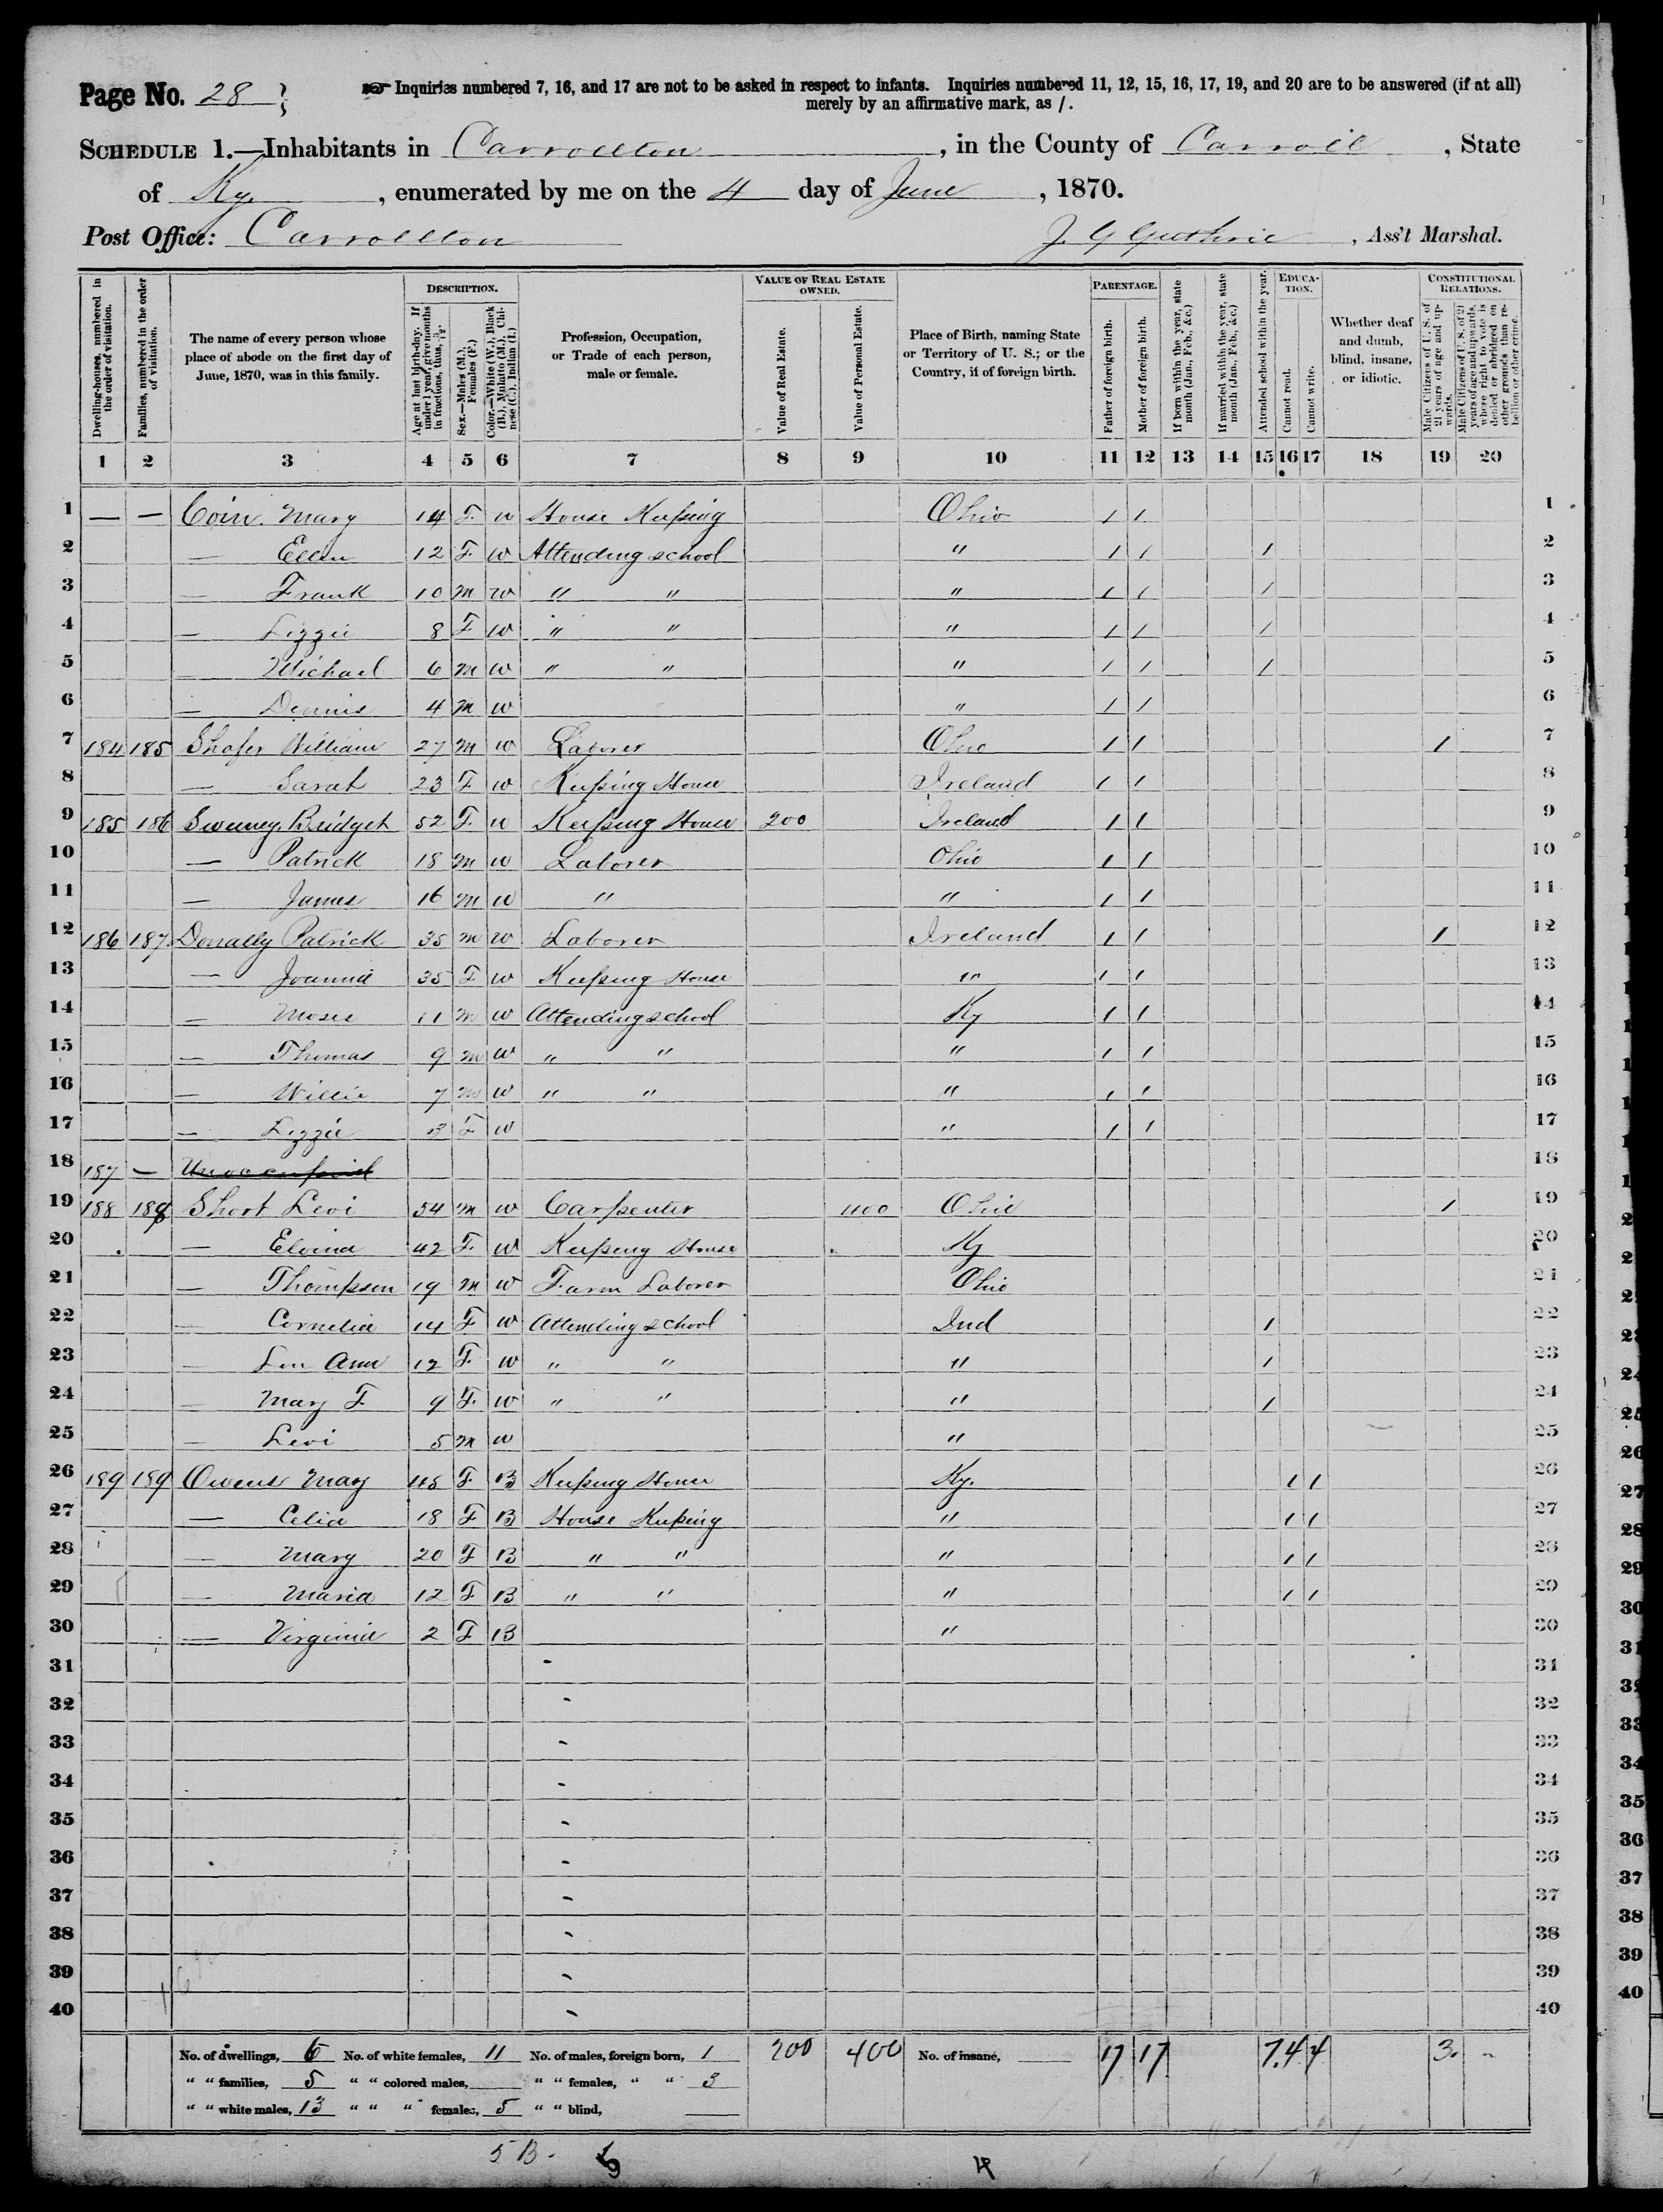 Page No. 28
Inquiries numbered 7, 16, and 17 are not to be asked in respect to infants. Inquiries numbered 11, 12, 15, 16, 17, 19, and 20 are to be answered (if at all)
merely by an affirmative mark, as /.
SCHEDULE 1.—Inhabitants in Carrollton, in the County of Carroll, State
of Ky., enumerated by me on the 4 day of June, 1870.
Post Office: Carrollton J. G Guthrie, Ass't Marshal.
Dwelling-houses, numbered in the order of visitation.
Families, numbered in the order of visitation.
The name of every person whose place of abode on the first day of June, 1870, was in this family.
DESCRIPTION.
Age at last birth-day. If under 1 year, give months in fractions, thus, 3/12.
Sex.—Males (M.), Females (F.)
Color.—White (W.), Black (B.), Mulatto (M.), Chinese (C.), Indian (I.)
Profession, Occupation, or Trade of each person, male or female.
VALUE OF REAL ESTATE OWNED.
Value of Real Estate.
Value of Personal Estate.
Place of Birth, naming State or Territory of U. S.; or the Country, if of foreign birth.
PARENTAGE.
Father of foreign birth.
Mother of foreign birth.
If born within the year, state month (Jan., Feb., &c.)
If married within the year, state month (Jan., Feb., &c.)
Attended school within the year.
EDUCATION.
Cannot read.
Cannot write.
Whether deaf and dumb, blind, insane, or idiotic.
CONSTITUTIONAL RELATIONS.
Male Citizens of U. S. of 21 years of age and upwards.
Male Citizens of U. S. of 21 years of age and upwards, whose right to vote is denied or abridged on other grounds than rebellion or other crime.
1 2 3 4 5 6 7 8 9 10 11 12 13 14 15 16 17 18 19 20
1 — — Coin. Mary 14 F. W House Keeping Ohio / / 1
2 — Ellen 12 F W Attending school " / / / 2
3 — Frank 10 M W " " " / / / 3
4 — Lizzie 8 F W " " " / / / 4
5 — Michael 6 M W " " " / / / 5
6 — Dennis 4 M W " / / 6
7 184 185 Shafer William 27 M W Laborer Ohio / / / 7
8 — Sarah 23 F W Keeping House Ireland / / 8
9 185 186 Sweeney Bridget 52 F. W Keeping House 200 Ireland / / 9
10 — Patrick 18 M W Laborer Ohio / / 10
11 — James 16 M W " " / / 11
12 186 187 Donally Patrick 35 M W Laborer Ireland / / / 12
13 — Joanna 35 F W Keeping House " / / 13
14 — Moses 11 M W Attending school Ky / / 14
15 — Thomas 9 M W " " " / / 15
16 — Willie 7 M W " " " / / 16
17 — Lizzie 3 F W " / / 17
18 187 — Unoccupied 18
19 188 188 Short Levi 54 M W Carpenter 400 Ohio / 19
20 — Elvina 42 F. W Keeping House Ky 20
21 — Thompson 19 M W Farm Laborer Ohio 21
22 — Cornelia 14 F W Attending school Ind / 22
23 — Ann 12 F. W " " " / 23
24 — Mary F 9 F. W " " " / 24
25 — Levi 5 M W " 25
26 189 189 Owens Mary 45 F. B Keeping House Ky. / / 26
27 — Celia 18 F B House Keeping " / / 27
28 — Mary 20 F B " " " / / 28
29 — Maria 12 F B " " " / / 29
30 — Virginia 2 F B " 30
31 31
32 32
33 33
34 34
35 35
36 36
37 37
38 38
39 39
40 40
No. of dwellings, 6 No. of white females, 11 No. of males, foreign born, 1 200 400 No. of insane, 17 17 7. 4 4 3. -
" " families, 5 " " colored males, " " females, " " 3
" " white males, 13 " " " females, 5 " " blind,
5 B-